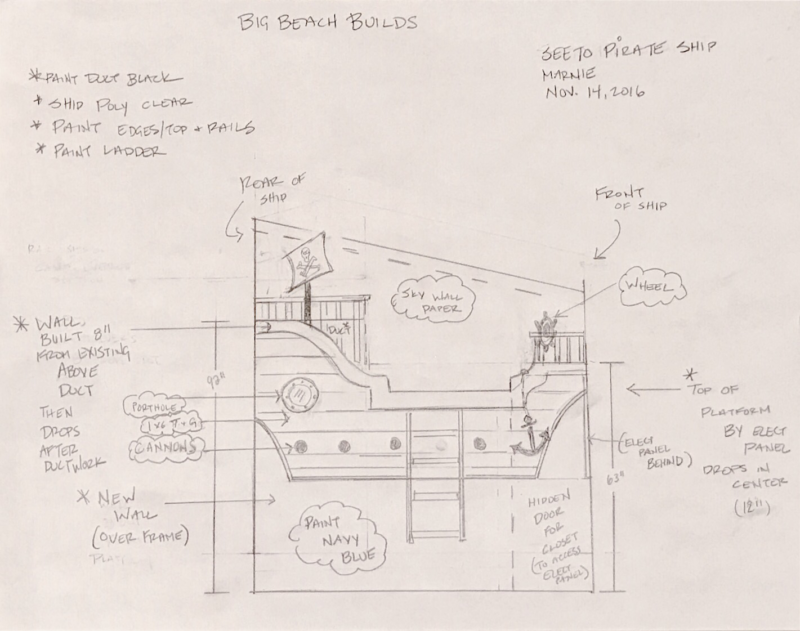 BIG BEACH BUILDS
SEETO PIRATE SHIP
MARNIE
NOV. 14, 2016
* PAINT DUCT BLACK
* SHIP POLY CLEAR
* PAINT EDGES/TOP + RAILS
* PAINT LADDER
REAR OF
SHIP
FRONT
OF SHIP
SKY WALL
PAPER
WHEEL
* WALL
BUILT 8"
FROM EXISTING
ABOVE
DUCT
THEN
DROPS
AFTER
DUCTWORK
DUCT*
92"
PORTHOLE
1x6 T+G
CANNONS
* NEW
WALL
(OVER FRAME)
PAINT
NAVY
BLUE
HIDDEN
DOOR
FOR
CLOSET
(TO ACCESS
ELECT
PANEL)
(ELECT
PANEL
BEHIND)
63"
*
TOP OF
PLATFORM
BY ELECT
PANEL
DROPS IN
CENTER
(12")